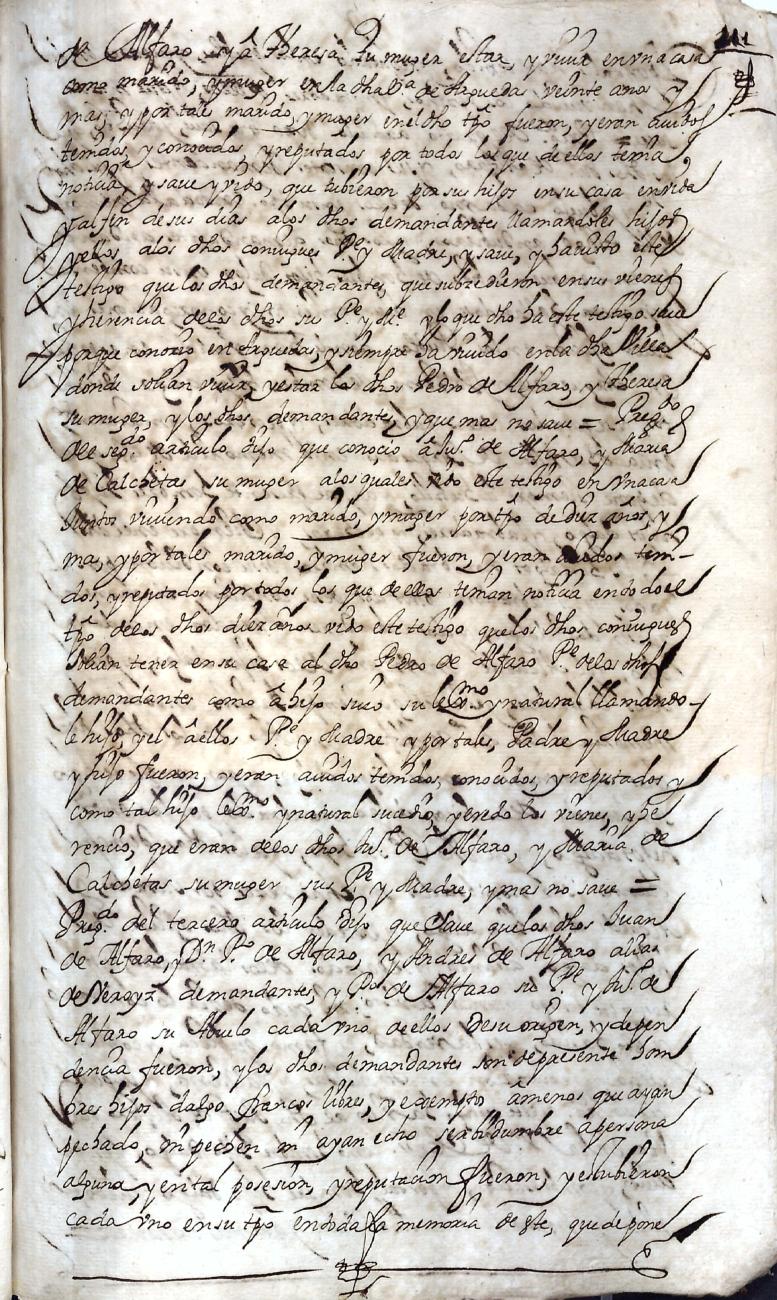 111
de Alfaro, y a Theresa su muger estar, y vivir en vna casa
como marido, y muger en la dha va de Azquedas veinte anos y
mas, y por tales marido, y muger en el dho tpo fueron, y eran auidos
tenidos, y conocidos, y reputados por todos los que de ellos tenia
noticia, y saue y vido, que tubieron por sus hijos en su casa en vida
y al fin de sus dias a los dhos demandantes llamandoles hijos
y ellos, a los dhos conjuges Pe y Madre, y saue, y ha visto este
testigo que los dhos demandantes, que subcedieron en sus vienes
y herencia de los dhos su Pe y Me y lo que dho ha este testigo saue
porque conocio en Azquedas, y siempre ha viuido en la dha Villa
donde solian viuir, y estar los dhos Pedro de Alfaro, y Theresa
su muger, y los dhos demandantes, y que mas no saue = Pregdo
del segdo articulo dijo que conocio a Jun de Alfaro, y Maria
de Calchetas su muger a los quales vido este testigo en vna casa
juntos viviendo como marido, y muger por tpo de diez años, y
mas, y por tales marido, y muger fueron, y eran auidos teni-
dos, y reputados por todos los que de ellos tenian noticia en todo el
tpo de los dhos diez años vido este testigo que los dhos conjuges
solian tener en su casa al dho Pedro de Alfaro Pe de los dhos
demandantes como a hijo suio su legmo y natural llamando-
le hijo, y el a ellos Pe y Madre y por tales, Padre y Madre
y hijo fueron, y eran auidos tenidos, conocidos, y reputados y
como tal hijo legmo y natural sucedio, y eredo los vienes, y he
rencio, que eran de los dhos Jun de Alfaro, y Maria de
Calchetas su muger sus Pe y Madre, y mas no saue =
Pregdo del tercero articulo dijo que saue que los dhos Juan
de Alfaro, y Dn Po de Alfaro, y Andres de Alfaro alias
de demandantes, y Po de Alfaro su Pe y Jun de
Alfaro su Abuelo cada vno de ellos de su origen, y depen
dencia fueron, y los dhos demandantes son de presente hom
bres hijos dalgo francos libres, y exemptos a menos que ayan
pechado, ni pechen ni ayan echo serbidumbre a persona
alguna, y en tal posesion, y reputacion fueron, y estubieron
cada vno en su tpo en toda la memoria de este, que depone